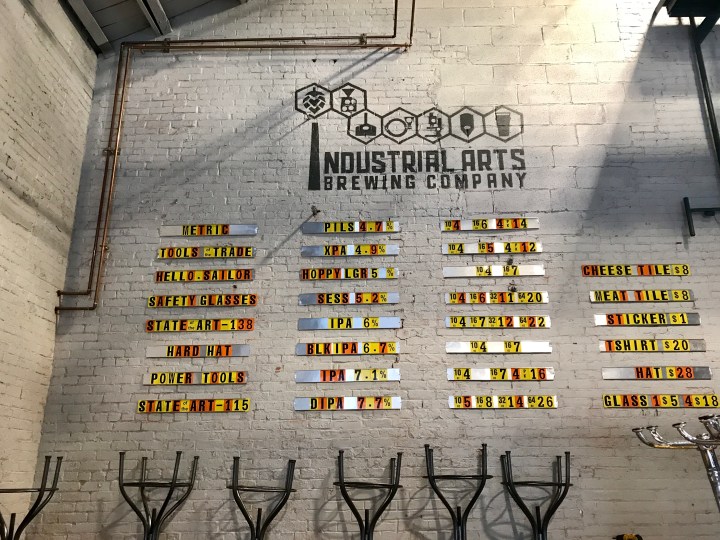 INDUSTRIAL ARTS
BREWING COMPANY
METRIC PILS 4.7% 10 4 16 6 4:14
TOOLS OF THE TRADE XPA 4.9% 10 4 16 5 4:12
HELLO.SAILOR HOPPY LGR 5% 10 4 16 7
SAFETY GLASSES SESS 5.2% 10 4 16 6 32 11 64 20
STATE OF THE ART-138 IPA 6% 10 4 16 7 32 12 64 22
HARD HAT BLKIPA 6.7% 10 4 16 7
POWER TOOLS IPA 7.1% 10 4 16 7 4:16
STATE OF THE ART-115 DIPA 7.7% 10 5 16 8 32 14 64 26
CHEESE TILE $8
MEAT TILE $8
STICKER $1
TSHIRT $20
HAT $28
GLASS 1 $5 4 $18